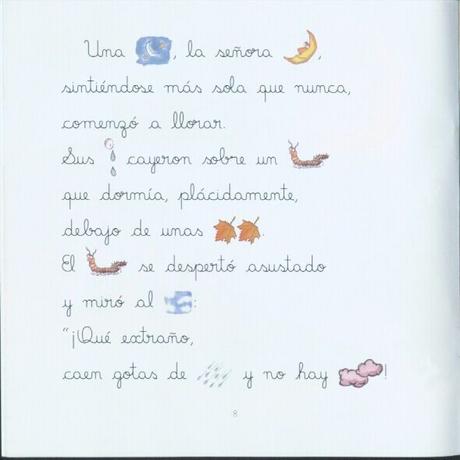 Una , la señora ,
sintiéndose más sola que nunca,
comenzó a llorar.
Sus cayeron sobre un
que dormía, plácidamente,
debajo de unas .
El se despertó asustado
y miró al :
"¡Qué extraño,
caen gotas de y no hay !
8